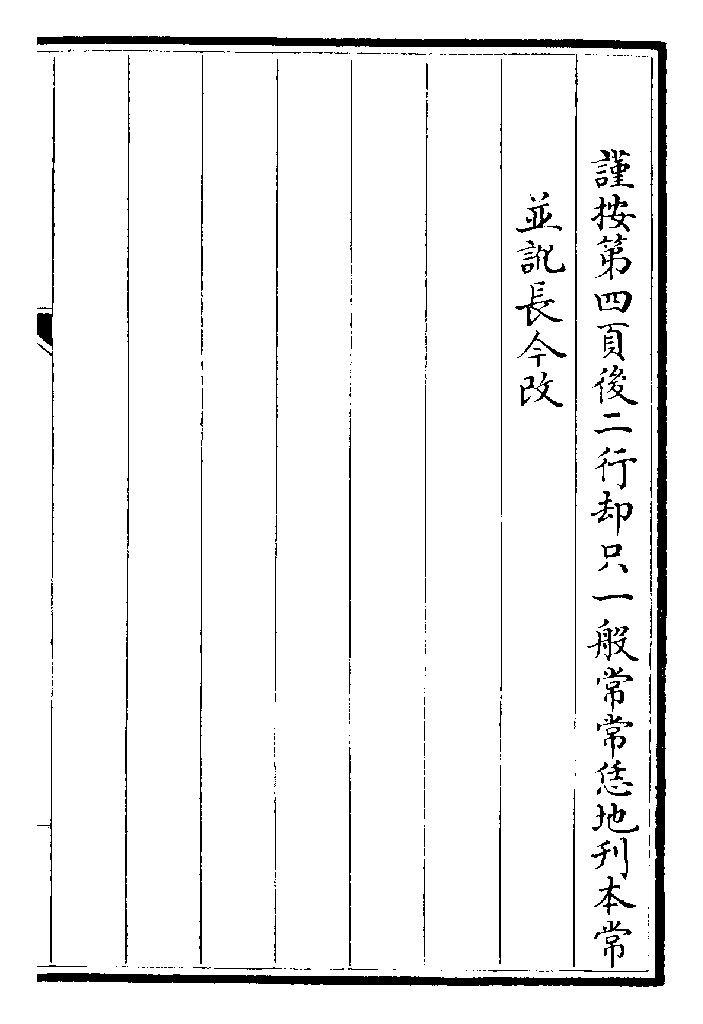 謹按第四頁後二行却只一般常常恁地刋本常
並訛長今改